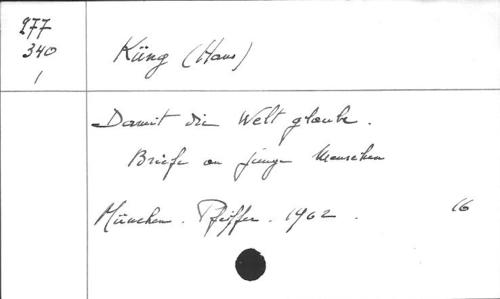 277
340
1
Küng (Hans)
Damit die Welt glaube.
Briefe an junge Menschen
München. Pfeiffer. 1962.
16